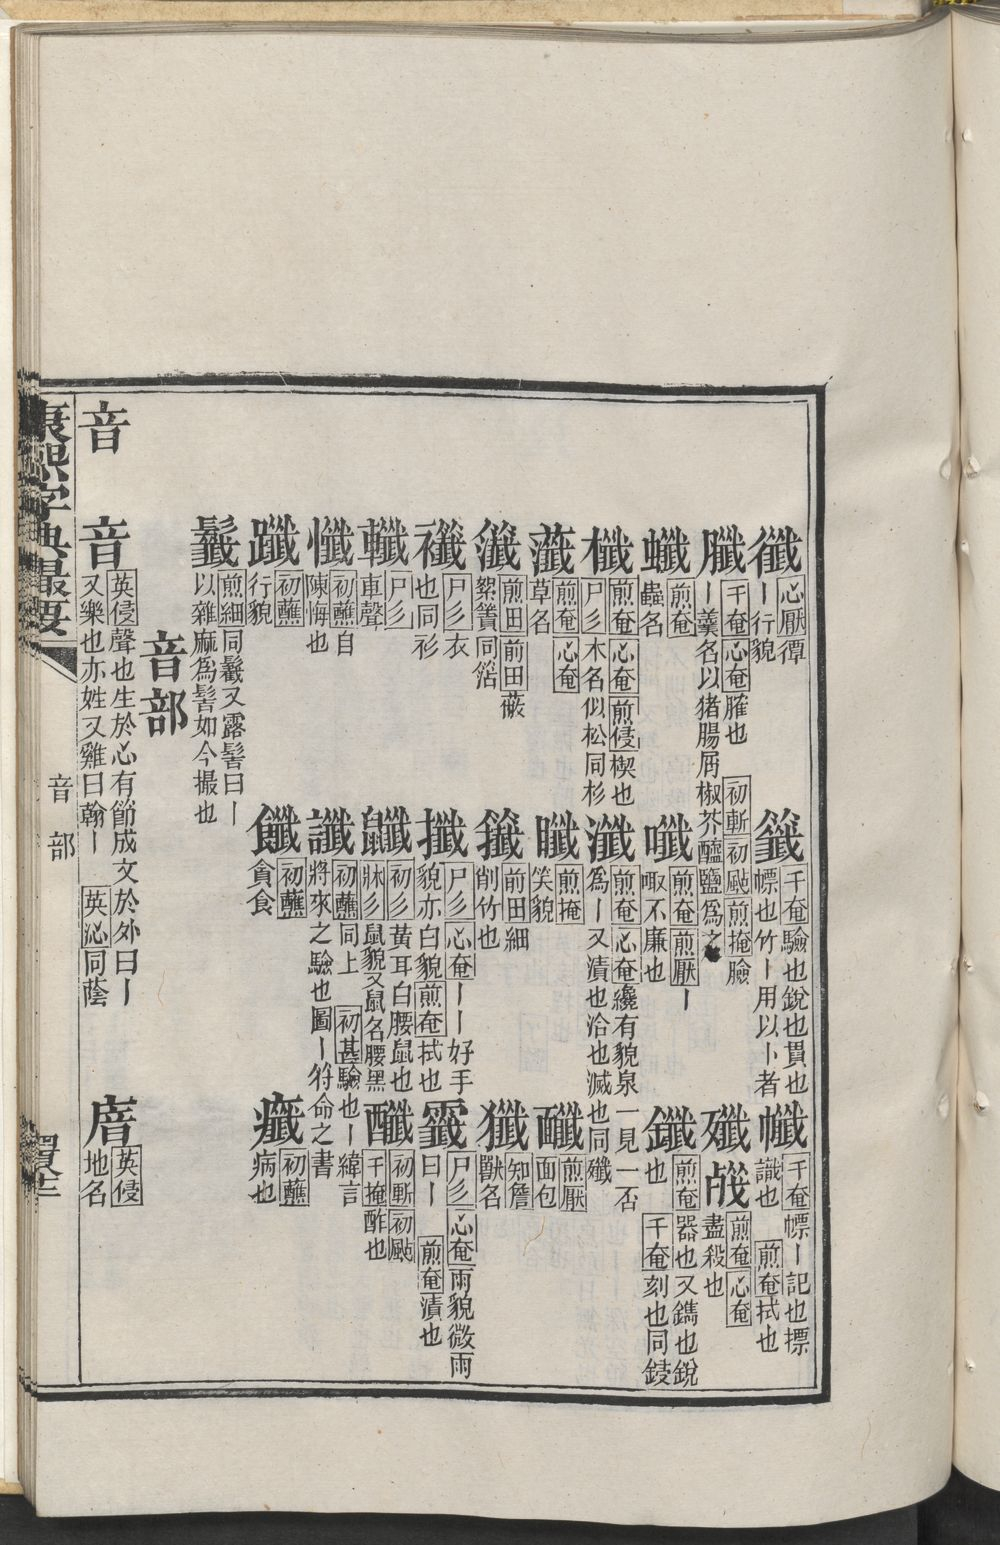 心厭彾
丨行貌
籤
千奄驗也銳也貫也
幖也竹丨用以卜者
幟
千奄幖丨記也摽
識也 煎奄拭也
臘
千奄心奄臛也 初斬初颭煎掩臉
丨羹名以猪腸屑椒芥醯鹽爲之
殲
煎奄心奄
盡殺也
蠘
煎奄
蟲名
嚵
煎奄煎厭丨
㖡不廉也
鑯
煎奄器也又鐫也銳
也 千奄刻也同錽
櫼
煎奄心奄煎侵楔也
尸彡木名似松同杉
瀸
煎奄心奄纔有貌泉一見一否
爲丨又漬也洽也滅也同殲
虃
煎奄心奄
草名
煎掩
笑貌
煎厭
面包
煎田前田蔽
絮簀同䈴
籤
前田細
削竹也
知詹
獸名
襳
尸彡衣
也同衫
攕
尸彡心奄丨丨好手
貌亦白貌煎奄拭也
霵
尸彡心奄雨貌微雨
曰丨 煎奄漬也
尸彡
車聲
初彡黃耳白腰鼠也
牀彡鼠貌又鼠名腰黑
初斬初颭
千掩酢也
懺
初蘸自
陳悔也
讖
初蘸同上 初甚驗也丨緯言
將來之驗也圖丨符命之書
初蘸
行貌
初蘸
貪食
初蘸
病也
煎細同鬋又露髻曰丨
以雜麻爲髻如今撮也
音部
音
音
英侵聲也生於心有節成文於外曰丨
又樂也亦姓又雞曰翰丨 英沁同蔭
㾕
英侵
地名
康熙字典撮要
音部